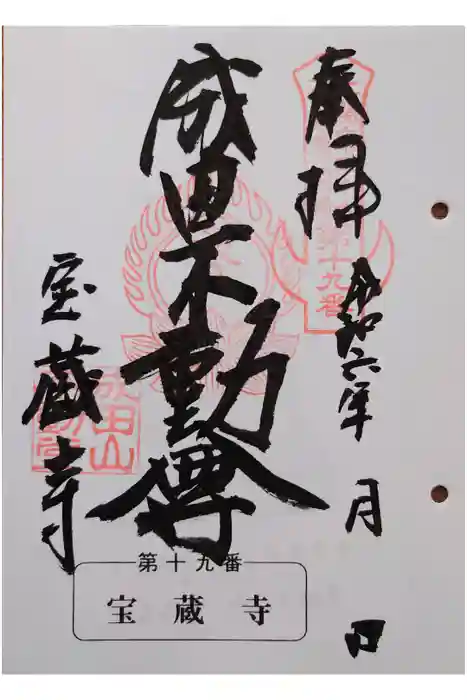 奉拝
令和六年 月 日
十九番
成田不動尊
宝蔵寺
成田山
第十九番
宝蔵寺